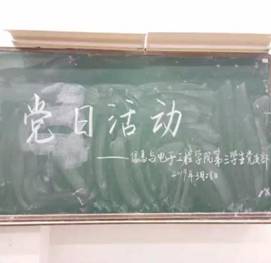 党日活动
——信息与电子工程学院第三学生党支部
2019年3月28日